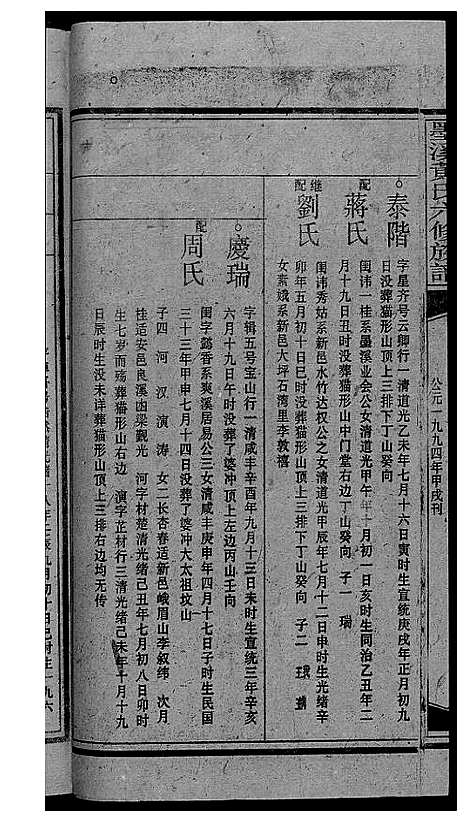 墨溪黄氏六修族譜
公元一九九四年甲戌刊
泰階
字星齐号云卿行一清道光乙未年七月十六日寅时生宣统庚戌年正月初九
日没葬猫形山顶上三排下丁山癸向
配
蔣氏
闺讳一桂系墨溪业会公女清道光甲午年十月初一日亥时生同治乙丑年二
月十九日丑时没葬猫形山中门堂右边丁山癸向 子一 瑞
继配
劉氏
闺讳秀姑系新邑水竹达权公之女清道光甲辰年七月十二日申时生光绪辛
卯年五月初十日巳时没葬猫形山顶上三排下丁山癸向 子二
女素娥系新邑大坪石湾里李敦禧
慶瑞
字辑五号宝山行一清咸丰辛酉年九月十三日未时生宣统三年辛亥
六月十九日午时没葬了婆冲顶上左边丙山壬向
配
周氏
闺字懿香系爽溪居易公三女清咸丰庚申年四月十七日子时生民国
三十三年甲申七月十四日没葬了婆冲大太祖坟山
子四 河 汉 演 涛 女二长杏春适新邑峨眉山李叙纬 次月
桂适安邑良溪凼梁觐光 河字材楚清光绪己丑年七月初八日卯时
生七岁而殇葬猫形山右边 演字芷材行三清光绪己未年十月十九
日辰时生没未详葬猫形山顶上三排右边均无传